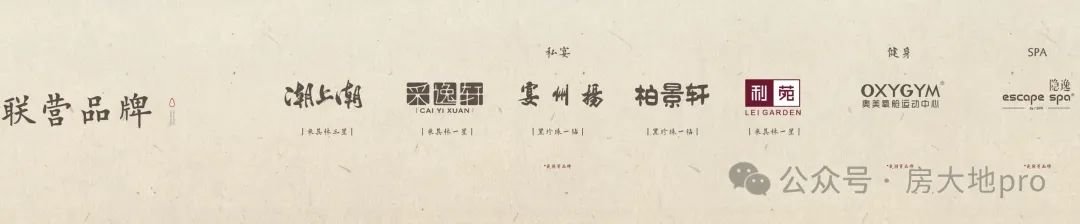 联营品牌
私宴
潮上潮
|米其林二星|
采逸轩
|CAI YI XUAN|
|米其林一星|
宴州揚
|黑珍珠一钻|
柏景轩
|黑珍珠一钻|
利苑
LEI GARDEN
|米其林一星|
健身
OXYGYM®
奥美氧舱运动中心
SPA
隐逸
escape spa®
公众号·房大地pro